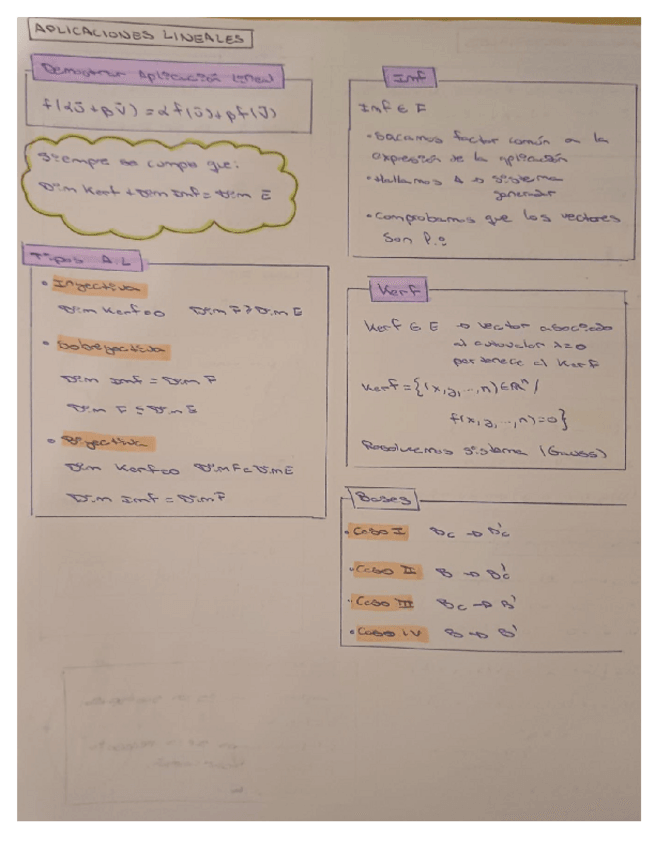 APLICACIONES LINEALES
Demostrar Aplicación lineal
f(αū + βv̄) = αf(ū) + βf(v̄)
Siempre se cumple que:
Dim Kerf + Dim Imf = Dim E
Tipos A.L
• Inyectiva
Dim Kerf = 0 Dim F ≥ Dim E
• Sobreyectiva
Dim Imf = Dim F
Dim F ≤ Dim E
• Biyectiva
Dim Kerf = 0 Dim F = Dim E
Dim Imf = Dim F
Imf
Imf ∈ F
• Sacamos factor común a la
expresión de la aplicación
• Hallamos A → sistema
generador
• Comprobamos que los vectores
son l.i
Kerf
Kerf ∈ E → vector asociado
al autovalor λ=0
pertenece al Kerf
Kerf = {(x, y, ..., n) ∈ ℝⁿ /
f(x, y, ..., n) = 0}
Resolvemos sistema (Gauss)
Bases
• Caso I Bc → B'c
• Caso II B → B'c
• Caso III Bc → B'
• Caso IV B → B'